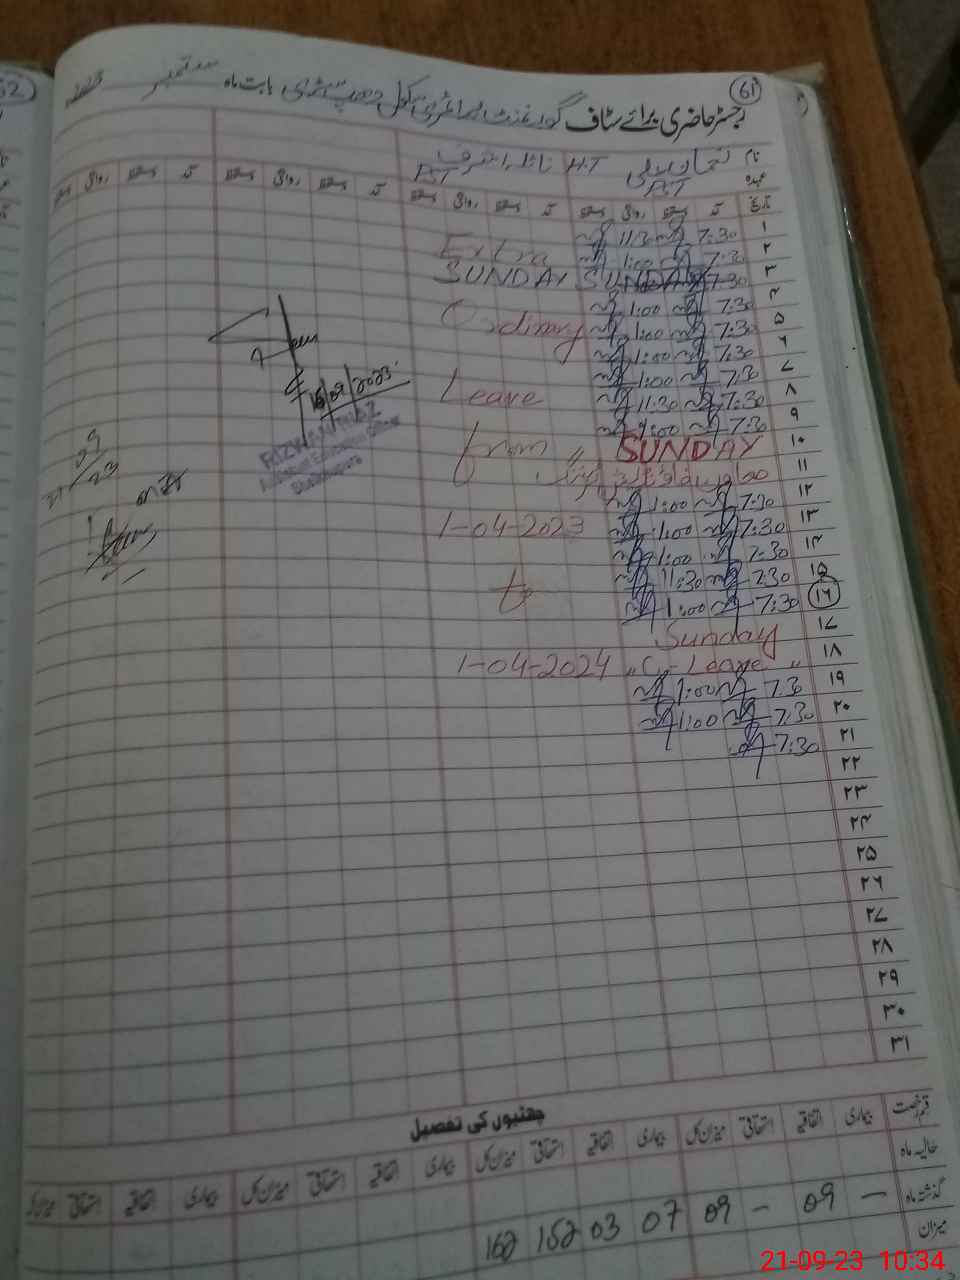 61
رجسٹر حاضری برائے سٹاف گورنمنٹ پرائمری سکول بابت ماہ ستمبر
نام H.T
عہدہ PST PST
تاریخ
۱ 7:30 11:30
۲ 7:30 1:00 Extra
۳ 7:30 SUNDAY SUNDAY
۴ 7:30 1:00
۵ 7:30 1:00 Ordinary
۶ 7:30 1:00
۷ 7:30 1:00
۸ 7:30 11:30 Leave
۹ 7:30 1:00
۱۰ SUNDAY from
۱۱
۱۲ 7:30 1:00
۱۳ 7:30 1:00 1-04-2023
۱۴ 7:30 1:00
۱۵ 7:30 11:30 to
۱۶ 7:30 1:00
۱۷ Sunday
۱۸ "C-Leave" 1-04-2024
۱۹ 7:30 1:00
۲۰ 7:30 1:00
۲۱ 7:30
۲۲
۲۳
۲۴
۲۵
۲۶
۲۷
۲۸
۲۹
۳۰
۳۱
16/09/2023
Assistant Education Officer
چھٹیوں کی تفصیل
قسم رخصت بیماری اتفاقیہ استحقاقی میزان کل بیماری اتفاقیہ استحقاقی میزان کل بیماری اتفاقیہ استحقاقی میزان کل بیماری اتفاقیہ استحقاقی میزان کل
حالیہ ماہ
گذشتہ ماہ — 09 — 09 07 03 152 162
میزان
21-09-23 10:34